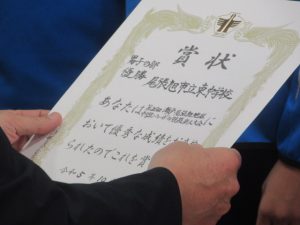 賞状
男子の部
優勝 尾張旭市立東中学校
あなたは
に
おいて優秀な成績を
られたのでこれを賞
令和5年10